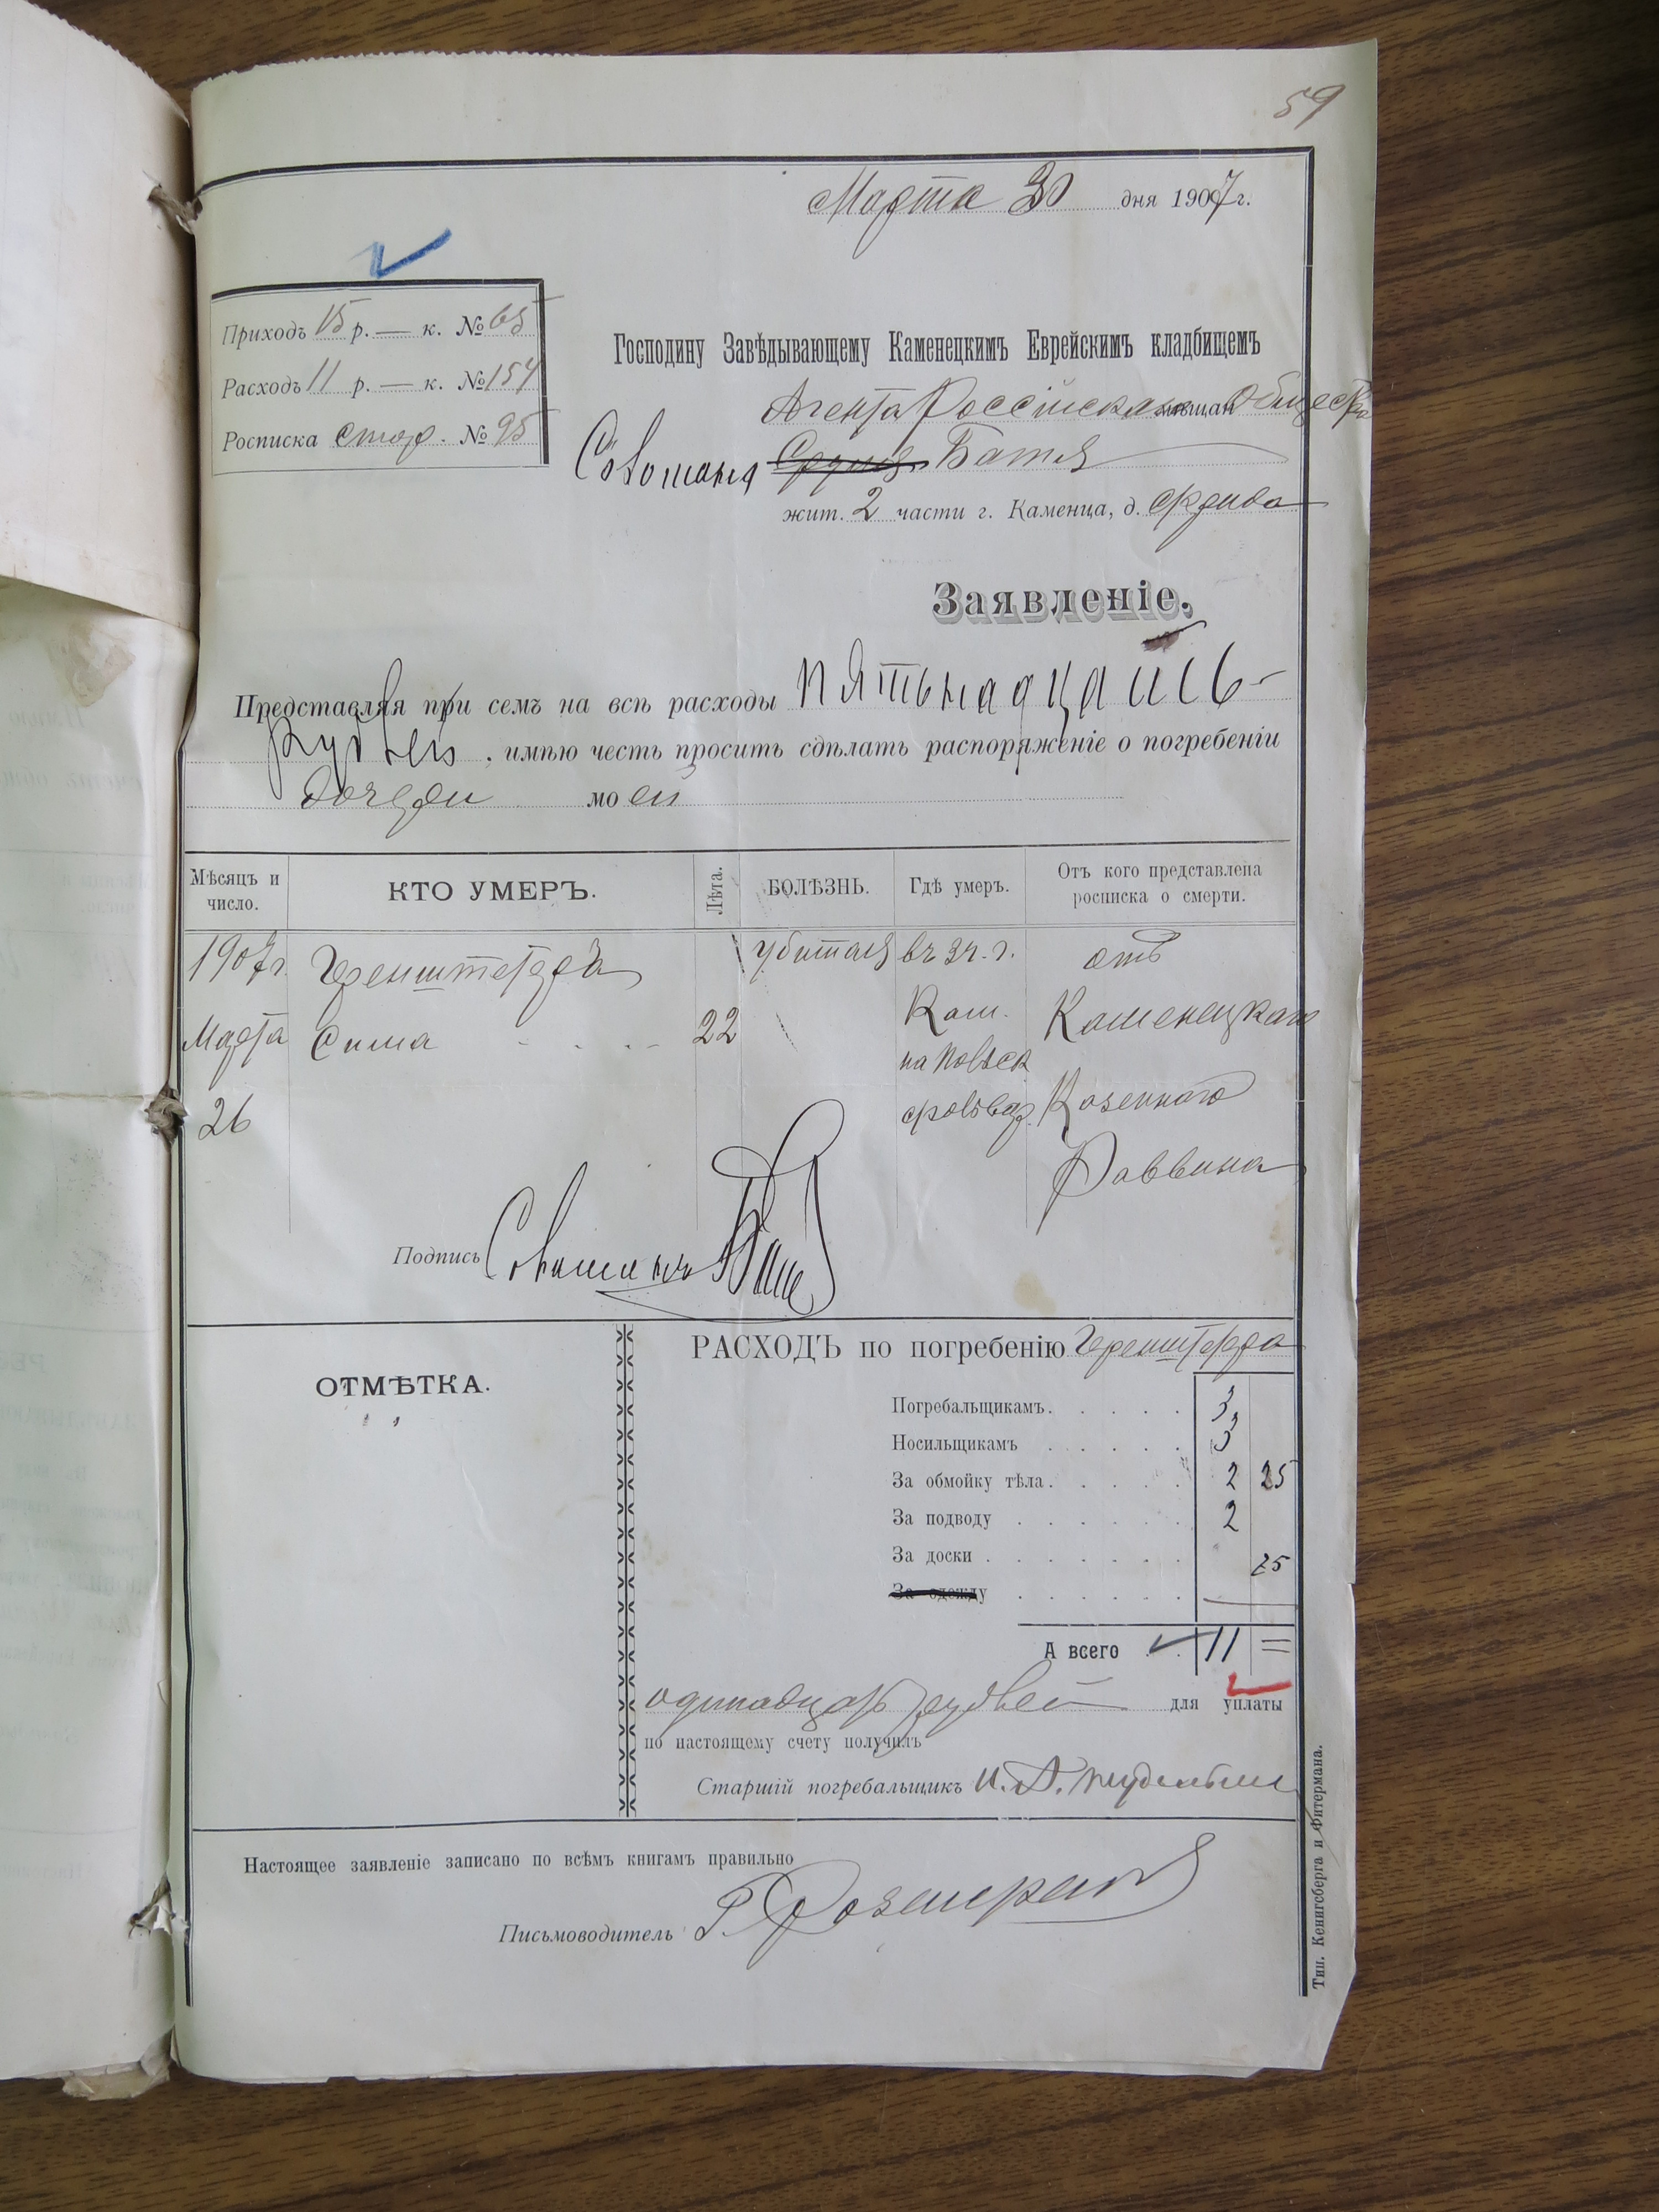 59
Марта 30 дня 1907 г.
Приходъ 15 р. — к. № 65
Расходъ 11 р. — к. № 154
Росписка стар. № 95
Господину Завѣдывающему Каменецкимъ Еврейскимъ кладбищемъ
Агента Россійскаго мѣщан Обществ
Соломона Баталъ
жит. 2 части г. Каменца, д.
Заявленіе.
Представляя при семъ на всѣ расходы пятьнадцать
рублей, имѣю честь просить сдѣлать распоряженіе о погребеніи
дочери моей
Мѣсяцъ и число.
КТО УМЕРЪ.
Лѣта.
БОЛѢЗНЬ.
Гдѣ умеръ.
Отъ кого представлена росписка о смерти.
1907 г. убитая отъ
Марта Сима 22 Кам. Каменецкаго
26 Казеннаго
Раввина
Подпись
РАСХОДЪ по погребенію
ОТМѢТКА.
Погребальщикамъ. 3
Носильщикамъ 3
За обмойку тѣла. 2 25
За подводу 2
За доски 75
За одежду
А всего 11 =
одинадцать рублей для уплаты
по настоящему счету получилъ
Старшій погребальщикъ
Настоящее заявленіе записано по всѣмъ книгамъ правильно
Письмоводитель
Тип. Кенигсберга и Фитермана.